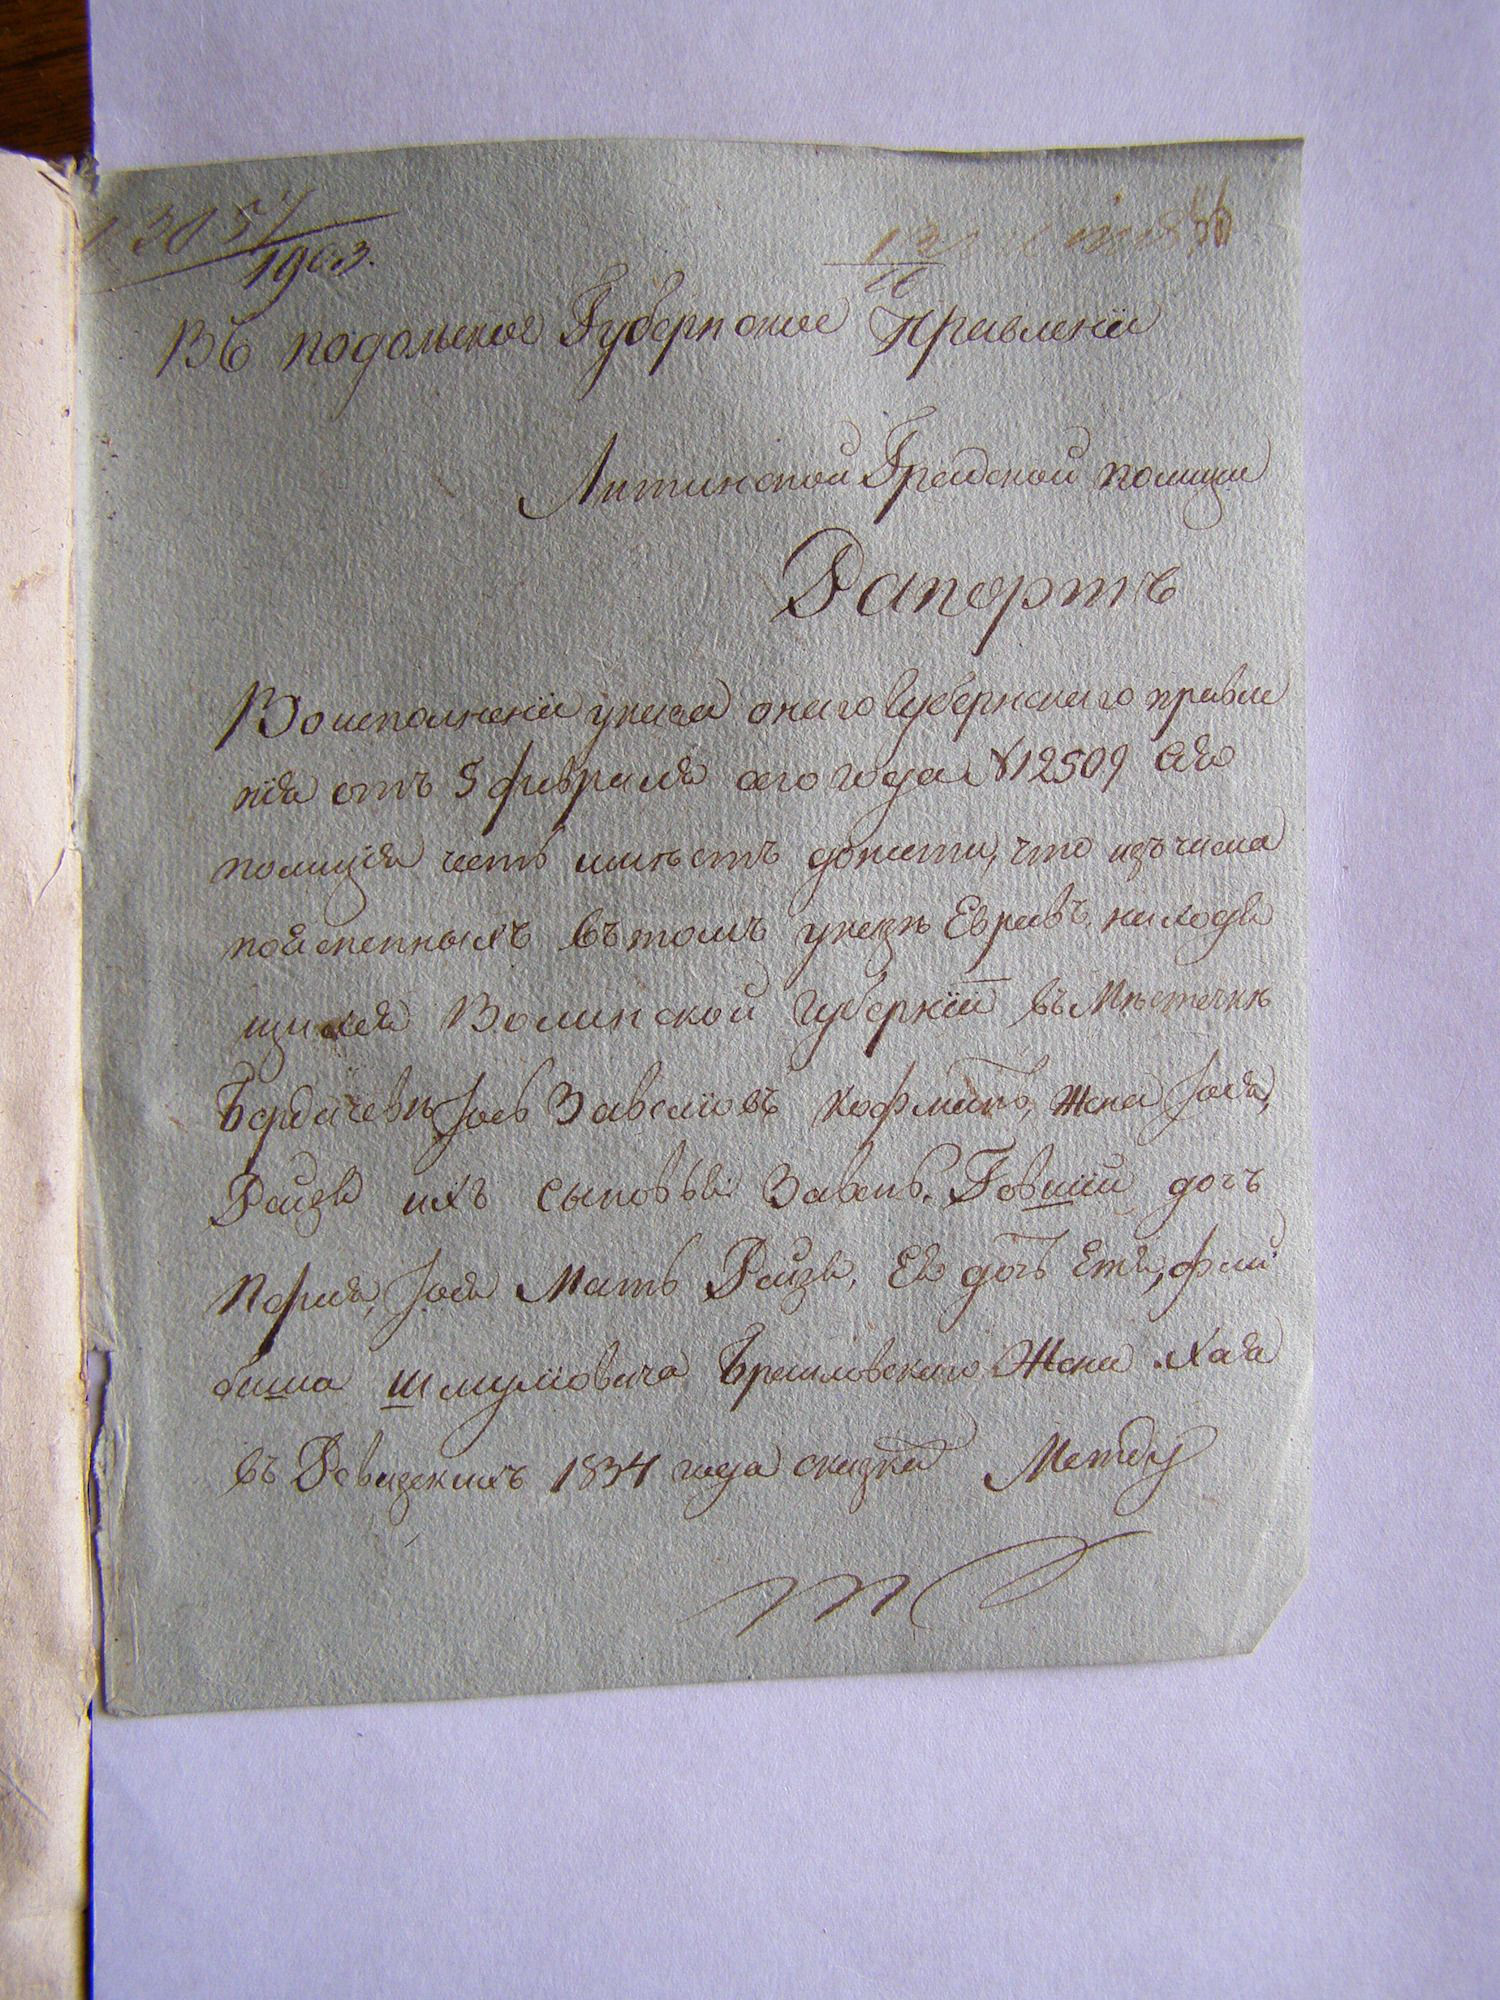 3054
1903.
56
Въ подольское Губернское Правленіе
Литинской Градской полиции
Рапортъ
Во исполненіи указа онаго Губернскаго правле
нія отъ 5 февраля сего года №12509 Сія
полиція честь имѣетъ донести, что изъ числа
поясненныхъ въ томъ указѣ Евреевъ находя
щихся Волинской Губерніи въ Мѣстечкѣ
Бердичевѣ Іось Завеліовъ Кофманъ, Жена Іося,
Рейзя ихъ сыновья Завель, Говшій дочь
Перля, Іося Мать Рейзя, Ея дочь Етя, фай
биша Шмуліовича Браиловскаго Жена Хая
въ Ревизскихъ 1834 года сказкахъ Между